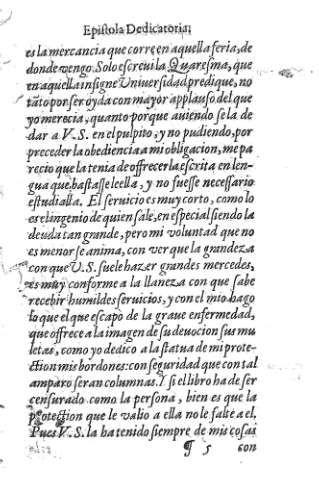 Epistola Dedicatoria;
es la mercancia que corre en aquella feria, de
donde vengo. Solo escreui la Quaresma, que
en aquella insigne Vniuersidad predique, no
tāto por ser oyda con mayor applauso del que
yo merecia, quanto porque auiendosela de
dar a V.S. en el pulpito, y no pudiendo, por
preceder la obediencia a mi obligacion, me pa
recio que la tenia de offrecer la escrita en len-
gua que bastasse leella, y no fuesse necessario
estudialla. El seruicio es muy corto, como lo
es el ingenio de quien sale, en especial siendo la
deuda tan grande, pero mi voluntad que no
es menor se anima, con ver que la grandeza
con que V.S. suele hazer grandes mercedes,
es muy conforme a la llaneza con que sabe
recebir humildes seruicios, y con el mio hago
lo que el que escapo de la graue enfermedad,
que offrece a la imagen de su deuocion sus mu
letas, como yo dedico a la statua de mi prote-
ction mis bordones: con seguridad que con tal
amparo seran columnas. Y si el libro ha de ser
censurado como la persona, bien es que la
protection que le valio a ella no le falte a el.
Pues V.S. la ha tenido siempre de mis cosas
¶ 5 con